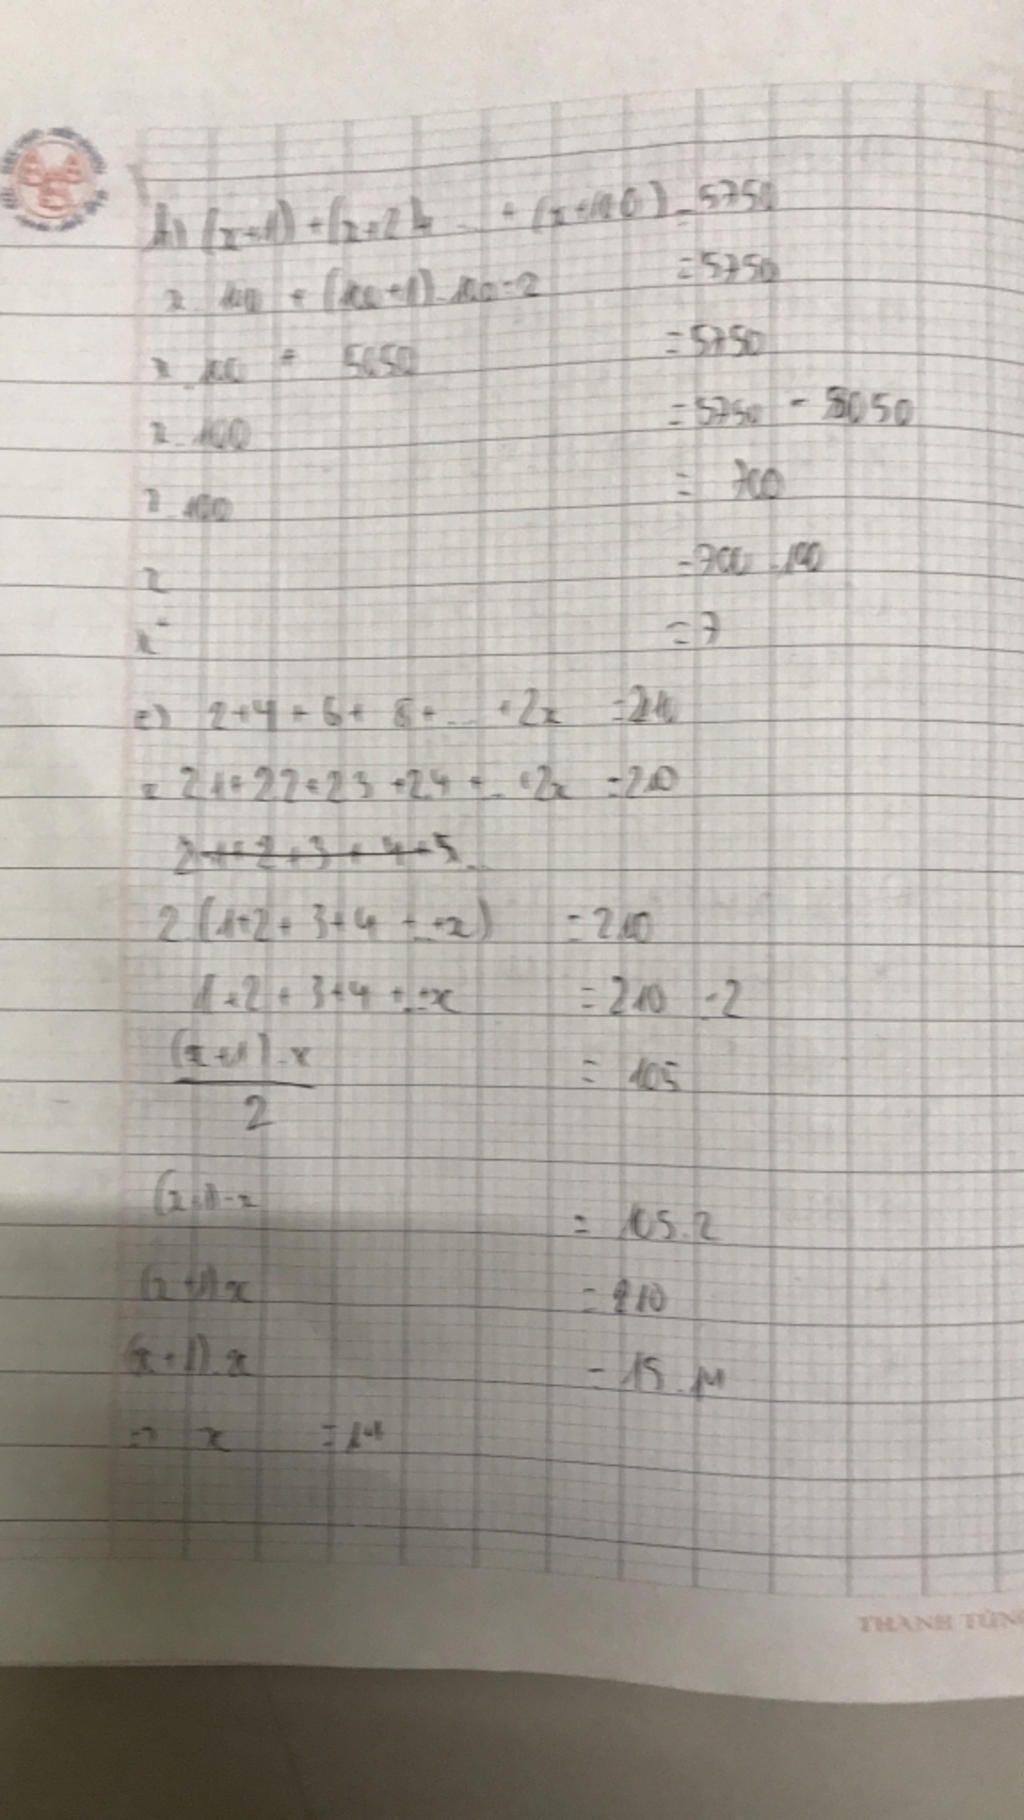 (x+1)+(x+2)+ ... + (x+100) = 5750
x . 100 + (100+1).100:2 = 5750
x . 100 + 5050 = 5750
x . 100 = 5750 - 5050
x . 100 = 700
x = 700 : 100
x = 7
c) 2+4+6+8+...+2x = 210
= 2.1+2.2+2.3+2.4+...+2x = 210
2(1+2+3+4+...+x) = 210
1+2+3+4+...+x = 210 : 2
(x+1).x
2
= 105
(x+1).x = 105.2
(x+1)x = 210
(x+1).x = 15.14
=> x = 14
THANH TÙNG